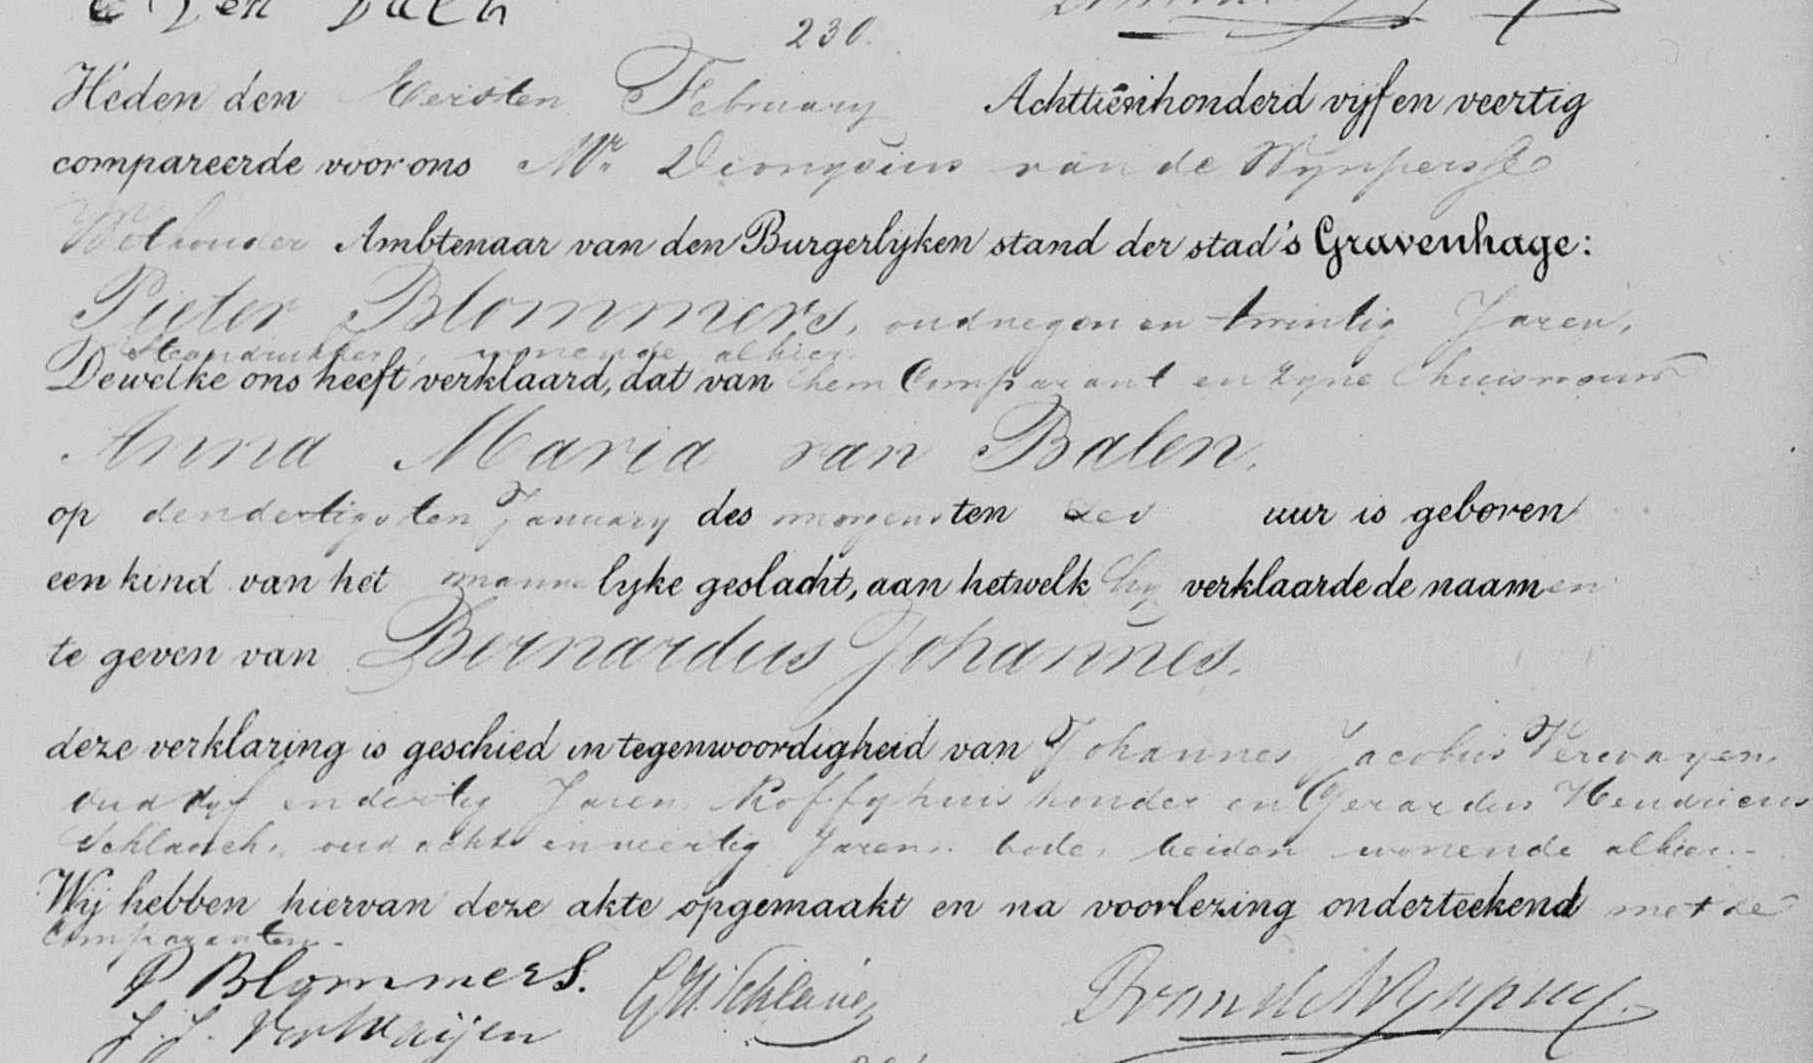 230.
Heden den Eersten February Achttienhonderd vijf en veertig
compareerde voor ons Mr. Dionysius van de Wynpersse
Wethouder Ambtenaar van den Burgerlijken stand der stad 's Gravenhage:
Pieter Blommers, oud negen en twintig Jaren,
Steendrukker, wonende alhier
Dewelke ons heeft verklaard, dat van hem Comparant en zyne huisvrouw
Anna Maria van Balen,
op den dertigsten January des morgens ten zes uur is geboren
een kind van het mannelyke geslacht, aan hetwelk hy verklaarde de naamen
te geven van Bernardus Johannes.
deze verklaring is geschied in tegenwoordigheid van Johannes Jacobus Verwayen,
oud vyf en dertig Jaren, Koffyhuishouder en Gerardus Hendricus
oud acht en veertig Jaren. bode, beiden wonende alhier.-
Wij hebben hiervan deze akte opgemaakt en na voorlezing onderteekend met de
Comparanten.-
P Blommers.
J. J. Verwaijen